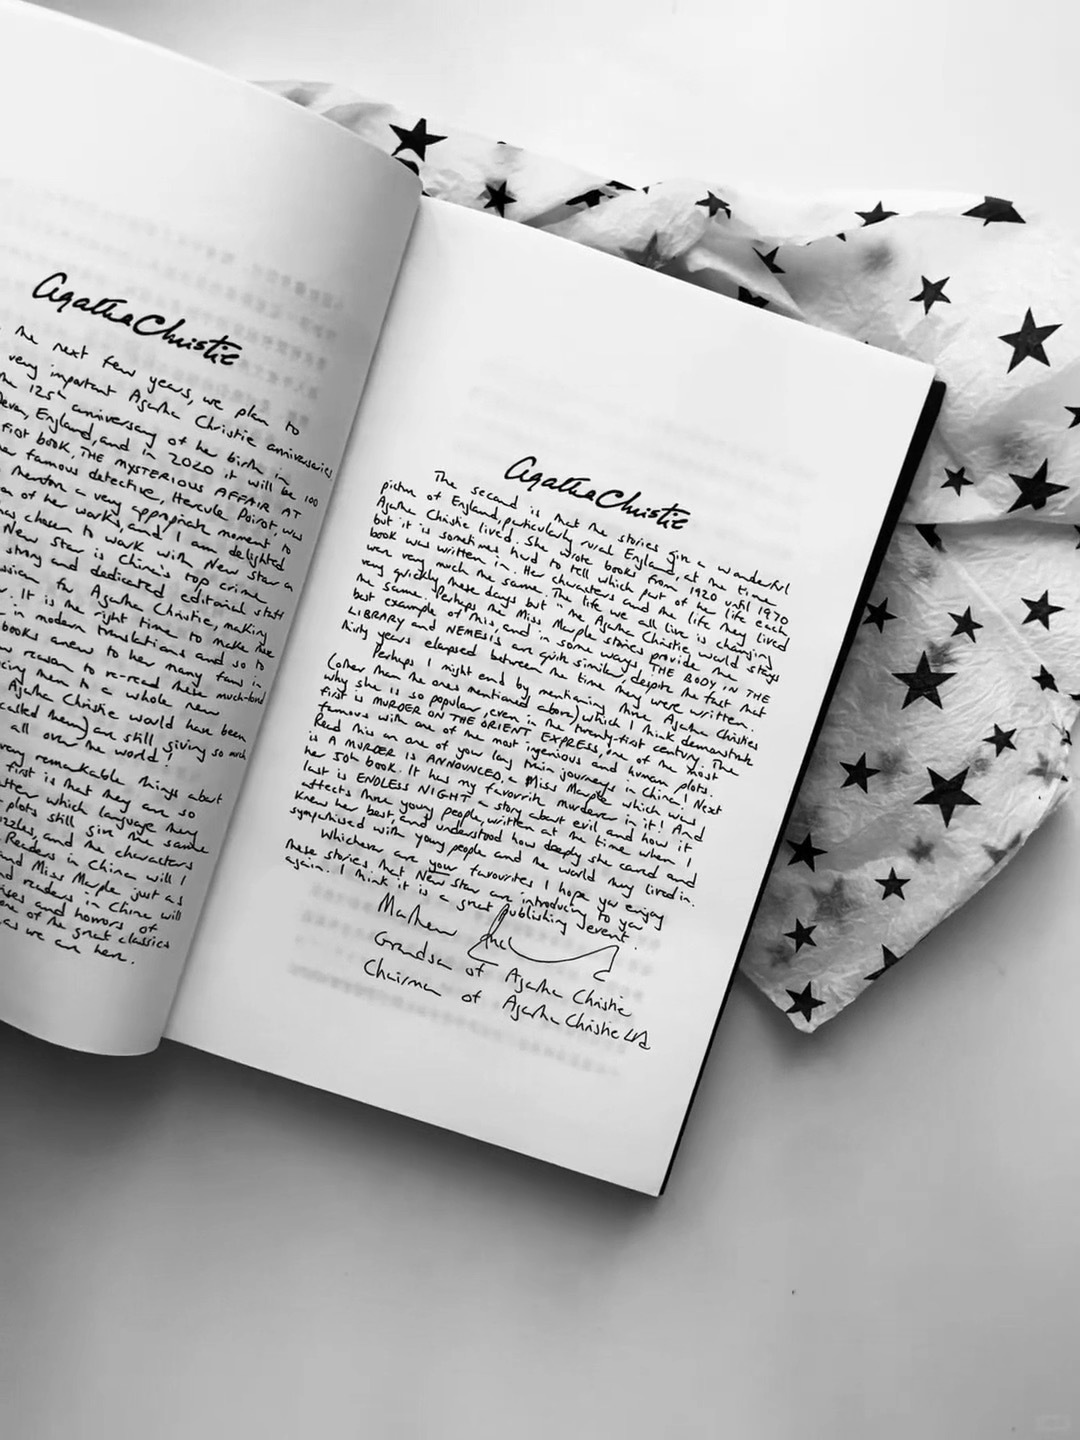 Agatha Christie
the next few years, we plan to
very important Agatha Christie anniversaries
the 125th anniversary of her birth in
Devon, England, and in 2020 it will be 100
first book, THE MYSTERIOUS AFFAIR AT
her famous detective, Hercule Poirot, was
mention a very appropriate moment to
of her works, and I am delighted
has chosen to work with New Star
New Star is China's top crime
strong and dedicated editorial staff
for Agatha Christie, making
. It is the right time to make
in modern translations and so to
books anew to her many fans in
reason to re-read these much-loved
them to a whole new
Agatha Christie would have been
called them) are still giving so much
all over the world!
very remarkable things about
first is that they are so
which language they
plots still give the same
and the characters
Readers in China will I
and Miss Marple just as
readers in China will
and horrors of
one of the great classics
as we are here.
Agatha Christie
The second is that the stories give a wonderful
picture of England, particularly rural England, at the time
Agatha Christie lived. She wrote books from 1920 until 1970
but it is sometimes hard to tell which part of her life each
book was written in. Her characters and the life they lived
were very much the same. The life we all live is changing
very quickly these days but "the Agatha Christie" world stays
the same. Perhaps the Miss Marple stories provide the
best example of this, and in some ways, THE BODY IN THE
LIBRARY and NEMESIS are quite similar, despite the fact that
thirty years elapsed between the time they were written.
Perhaps I might end by mentioning three Agatha Christies
(other than the ones mentioned above) which I think demonstrate
why she is so popular, even in the twenty-first century. The
first is MURDER ON THE ORIENT EXPRESS, one of the most
famous with one of the most ingenious and human plots.
Read this on one of your long train journeys in China! Next
is A MURDER IS ANNOUNCED, a Miss Marple which was
her 50th book. It has my favourite murderer in it! And
last is ENDLESS NIGHT a story about evil and how it
affects three young people, written at the time when I
knew her best, and understood how deeply she cared and
sympathised with young people and the world they lived in.
Whichever are your favourites I hope you enjoy
these stories that New Star are introducing to you
again. I think it is a great publishing event.
Mathew
Grandson of Agatha Christie
Chairman of Agatha Christie Ltd